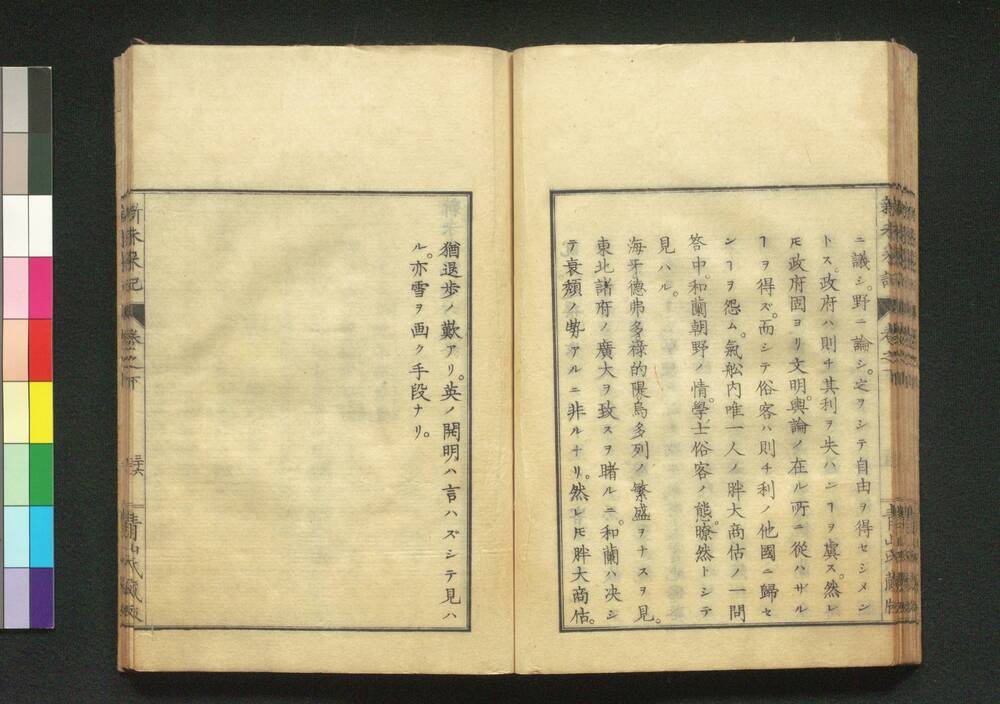 ニ議シ。野ニ論シ。之ヲシテ自由ヲ得セシメン
トス。政府ハ則チ其利ヲ失ハンヿヲ虞ス。然レ
𪜈政府固ヨリ文明。輿論ノ在ル所ニ從ハザル
ヿヲ得ズ。而シテ俗客ハ則チ利ノ他國ニ歸セ
ンヿヲ怨ム。氣舩内唯一人ノ胖大商估ノ一問
答中。和蘭朝野ノ情。學士俗客ノ態。暸然トシテ
見ハル。
海牙。德弗多。祿的隁。烏多列ノ繁盛ヲナスヲ見。
東北諸府ノ廣大ヲ致スヲ睹ルニ。和蘭ハ决シ
テ衰頽ノ勢アルニ非ルナリ。然レ𪜈胖大商估。
猶退歩ノ歎アリ。英ノ開明ハ言ハズシテ見ハ
ル。亦雪ヲ画ク手段ナリ。
新未來記
卷之下
三十六
青山氏藏版